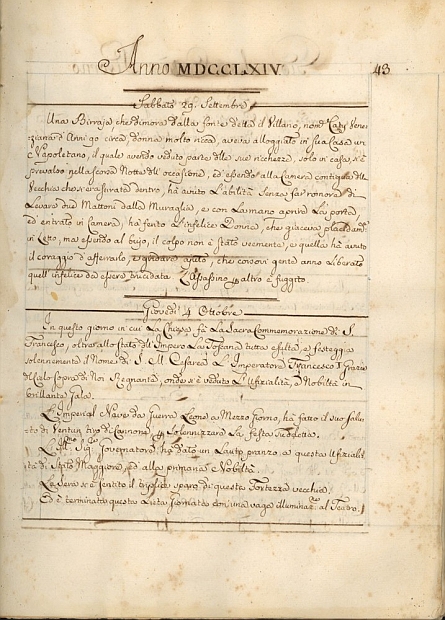 Anno MDCCLXIV.
43
Sabbato 29. Settembre
Una Birraja che dimora dalla fonte detta il Villano, nom.ta Catt.a Vene-
ziana d'Anni 50 circa, donna molto ricca, aveva alloggiato in sua Casa un
Napoletano, il quale avendo veduto parte delle sue ricchezze, solo in casa, si è
prevalso nella scorsa Notte dell'occasione, ed essendo alla Camera contigua della
Vecchia che s'era serrato dentro, ha avuto l'abilità senza far romore di
Levare due Mattoni dalla Muraglia, e con La mano aprire La porta,
ed entrato in Camera, ha ferito L'infelice Donna, che giaceva placidam.te
in Letto, ma essendo al bujo, il colpo non è stato veemente, e quella ha avuto
il coraggio d'afferrarlo, e gridare ajuto, che corsovi gente anno Liberato
quell'infelice da essere trucidata. L'assassino altro è fuggito.
Giovedì 4 Ottobre
In questo giorno in cui La Chiesa fà La Sacra Commemorazione di S.
Francesco, oltre allo Stato dell'Impero La Toscana tutta esulta, e festeggia
solennemente il Nome di S. M. Cesarea L'Imperatore Francesco I. Grazie
del Cielo sopra di Noi Regnante, onde si è veduto L'Ufizialità, e Nobiltà in
brillante Gala.
L'Imperial Nave da Guerra Leone a Mezzo Giorno, ha fatto il suo salu-
to di Ventun tiro di Cannone, p Solennizzare La festa sudetta.
L'Ill.mo Sig.e Governatore ha dato un Lauto pranzo a questa Ufiziali-
tà di Stato Maggiore, ed alla primaria Nobiltà.
La Sera si è sentito il triplice sparo di questa Fortezza vecchia,
Ed è terminata questa Lieta Giornata con una vaga illuminaz.e al Teatro.